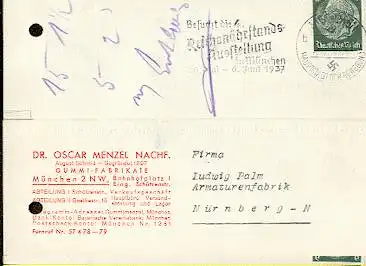 Besucht die 4.
Reichsnährstands-
Ausstellung
in München
6. Juni 1937
Deutsches Reich
15-1
5-2
DR. OSCAR MENZEL NACHF.
August Schmid - Gegründet 1897
GUMMI-FABRIKATE
München 2 NW, Bahnhofplatz 1
Eing. Schützenstr.
ABTEILUNG I Schützenstr. Verkaufsgeschäft
ABTEILUNG II
Hauptbüro Versand-
abteilung und Lager
Telegramm-Adresse: Gummimenzel, München
Bank-Konto: Bayerische Vereinsbank, München
Postscheck-Konto: München Nr. 1261
Fernruf Nr. 57478-79
Firma
Ludwig Palm
Armaturenfabrik
Nürnberg-N